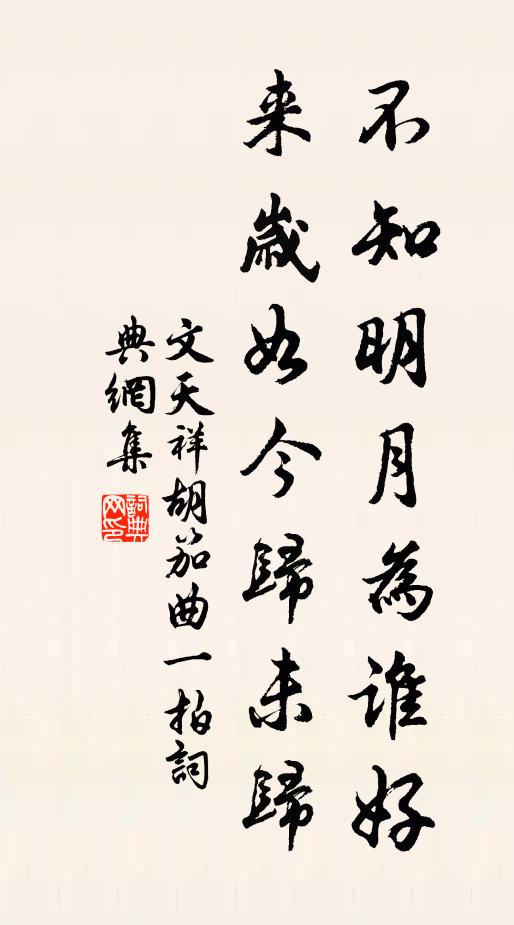 不知明月為誰好
来歲如今歸未歸
文天祥胡笳曲一拍詞
典網集
詞典网印